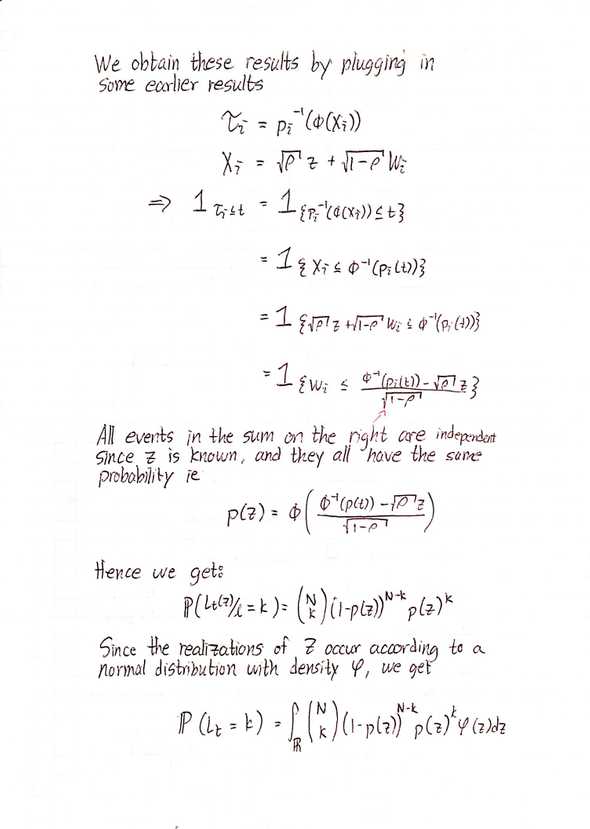 We obtain these results by plugging in
some earlier results
τᵢ = pᵢ⁻¹(Φ(Xᵢ))
Xᵢ = √ρ z + √1-ρ Wᵢ
⇒ 1 τᵢ≤t = 1 {pᵢ⁻¹(Φ(Xᵢ)) ≤ t}
= 1 {Xᵢ ≤ Φ⁻¹(pᵢ(t))}
= 1 {√ρ z + √1-ρ Wᵢ ≤ Φ⁻¹(pᵢ(t))}
= 1 {Wᵢ ≤ (Φ⁻¹(pᵢ(t)) - √ρ z)/√1-ρ}
All events in the sum on the right are independent
since z is known, and they all have the same
probability ie
p(z) = Φ( (Φ⁻¹(p(t)) - √ρ z)/√1-ρ )
Hence we get:
ℙ(Lₜ(z)/ℓ = k) = (N k) (1-p(z))^N-k p(z)^k
Since the realizations of Z occur according to a
normal distribution with density φ, we get
ℙ(Lₜ = k) = ∫_ℝ (N k) (1-p(z))^N-k p(z)^k φ(z)dz